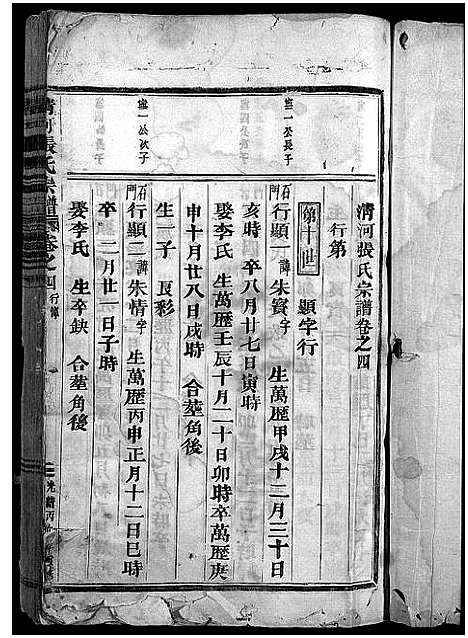 清河張氏宗譜卷之四
行第
第十世 顯字行
寔一公長子
石門行顯一諱朱賓字 生萬歷甲戌十二月三十日
亥時 卒八月廿七日寅時
娶李氏 生萬歷壬辰十月二十日卯時卒萬歷庚
申十月廿八日戌時 合塟角後
生一子 良彩
寔一公次子
石門行顯二諱朱情字 生萬歷丙申正月十二日巳時
卒 二月廿一日子時
娶李氏 生卒缺 合塟角後
清河張氏宗譜 卷之四 行第
光緒丙